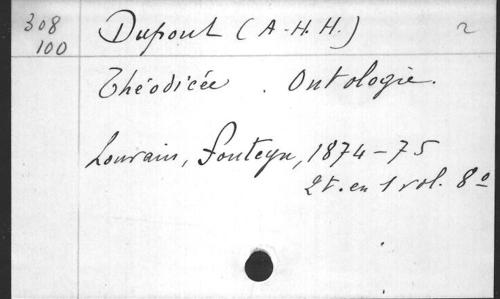 308 Dupont (A-H.H.) 2
100
Théodicée . Ontologie.
Louvain, Fonteyn, 1874-75
2t. en 1 vol. 8º